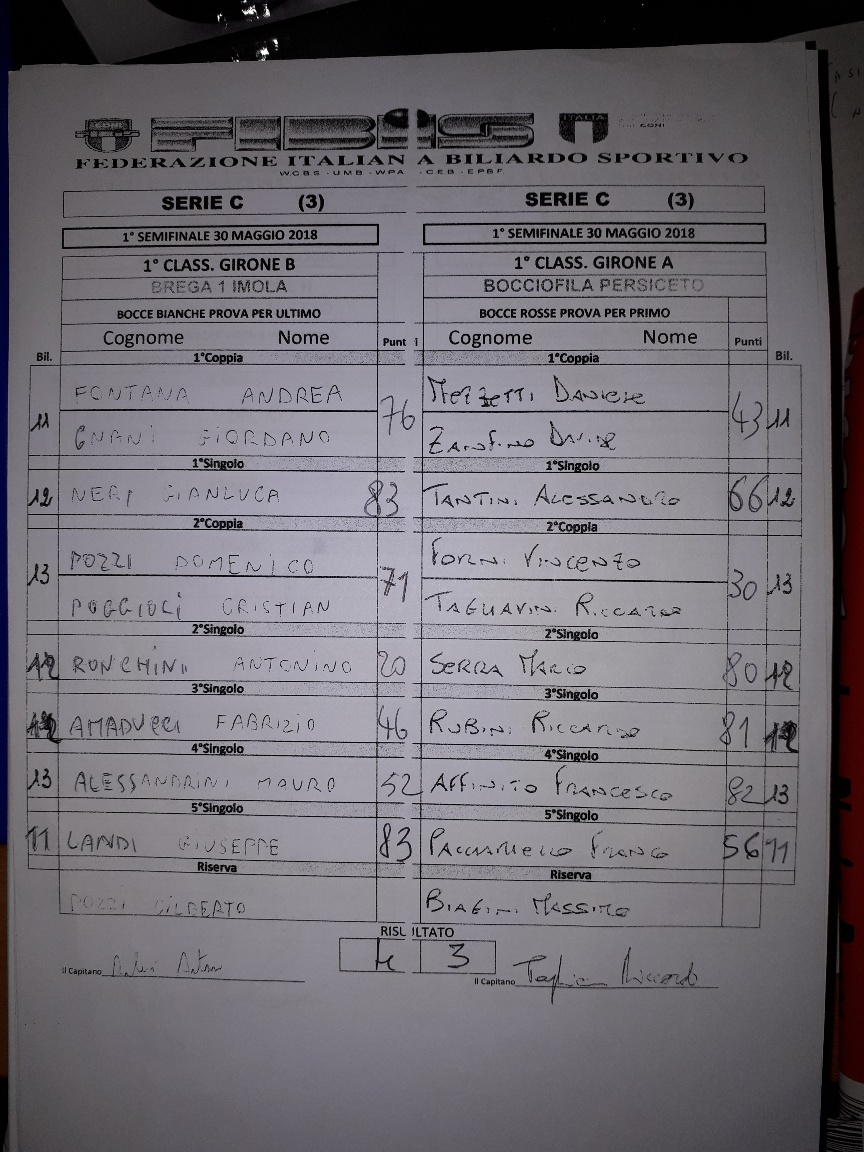 FIBIS
ITALIA
CONI
FEDERAZIONE ITALIAN A BILIARDO SPORTIVO
WCBS - UMB - WPA - CEB - EPBF
SERIE C (3) SERIE C (3)
1° SEMIFINALE 30 MAGGIO 2018 1° SEMIFINALE 30 MAGGIO 2018
1° CLASS. GIRONE B 1° CLASS. GIRONE A
BREGA 1 IMOLA BOCCIOFILA PERSICETO
BOCCE BIANCHE PROVA PER ULTIMO BOCCE ROSSE PROVA PER PRIMO
Cognome Nome Punt i Cognome Nome Punti
Bil. 1°Coppia 1°Coppia Bil.
FONTANA ANDREA MEZZETTI DANIELE
11 76 43 11
GNANI GIORDANO ZANFINO DAVIDE
1°Singolo 1°Singolo
12 NERI GIANLUCA 83 TANTINI ALESSANDRO 66 12
2°Coppia 2°Coppia
POZZI DOMENICO FORNI VINCENZO
13 71 30 13
POGGIOLI CRISTIAN TAGLIAVINI RICCARDO
2°Singolo 2°Singolo
12 RONCHINI ANTONINO 20 SERRA MARIO 80 12
3°Singolo 3°Singolo
AMADUCCI FABRIZIO 46 RUBINI RICCARDO 81
4°Singolo 4°Singolo
13 ALESSANDRINI MAURO 52 AFFINITO FRANCESCO 82 13
5°Singolo 5°Singolo
11 LANDI GIUSEPPE 83 FRANCO 56 11
Riserva Riserva
POZZI GILBERTO BIAGINI MASSIMO
RISU LTATO
4 3
Il Capitano Il Capitano Riccardo